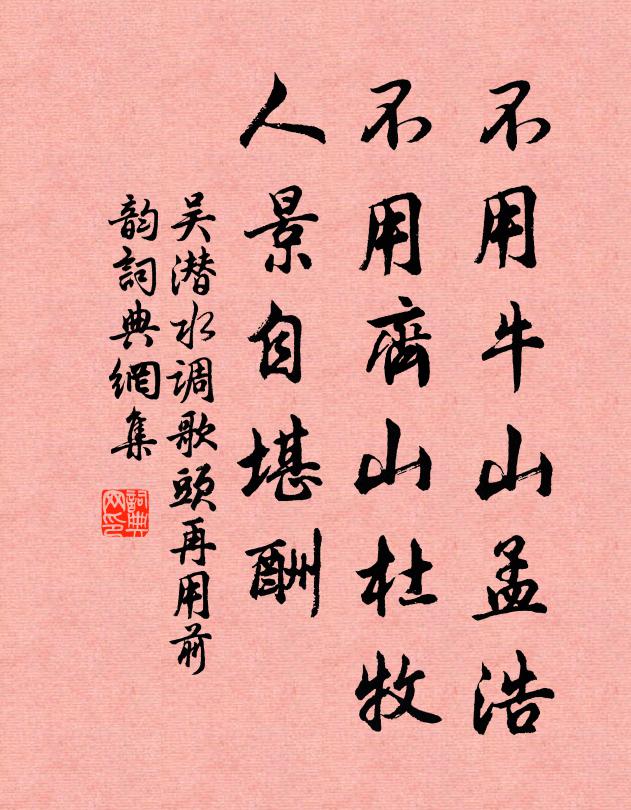 不用牛山孟浩
不用齊山杜牧
人景自堪酬
吴潜水调歌頭再用前
韵詞典網集
詞典
网印